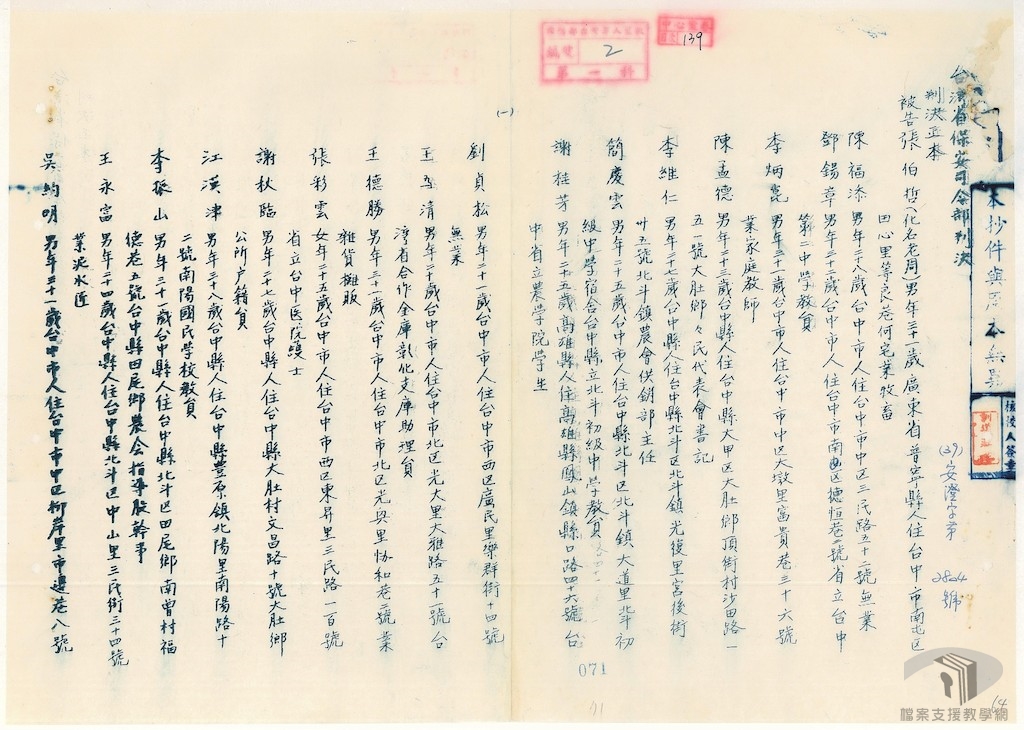 台灣省保安司令部判決
(39)安澄字第2804號
判決正本
被告張伯哲(化名老周)男年三十一歲廣東省普寧縣人住台中市南屯区
田心里等良巷何宅業牧畜
陳福添男年二十八歲台中市人住台中市中区三民路五十二號無業
鄧錫章男年二十三歲台中市人住台中市南区德恒巷二號省立台中
第二中學教員
李炳崑男年三十一歲台中市人住台中市中区大墩里富貴巷三十六號
業家庭教師
陳孟德男年二十三歲台中縣人住台中縣大甲区大肚鄉頂街村沙田路一
五一號大肚鄉々民代表會書記
李維仁男年二十七歲台中縣人住台中縣北斗区北斗鎮光復里宮後街
廿五號北斗鎮農會供銷部主任
簡慶雲男年二十五歲台中市人住台中縣北斗区北斗鎮大道里北斗初
級中學宿舍台中縣立北斗初級中學教員
謝桂芳男年二十五歲高雄縣人住高雄縣鳳山鎮縣口路四十六號台
中省立農學院學生
(一)
劉貞松男年二十一歲台中市人住台中市西区廣民里樂群街十四號
無業
王為清男年二十歲台中市人住台中市北区光大里大雅路五十一號台
灣省合作金庫彰化支庫助理員
王德勝男年三十一歲台中市人住台中市北区光與里協和巷二號業
雜貨攤販
張彩雲女年二十五歲台中市人住台中市西区東昇里三民路一百號
省立台中医院護士
謝秋臨男年二十七歲台中縣人住台中縣大肚村文昌路十號大肚鄉
公所户籍員
江漢津男年二十八歲台中縣人住台中縣豊原鎮北陽里南陽路十
二號南陽國民学校教員
李振山男年三十一歲台中縣人住台中縣北斗区田尾鄉南曾村福
德巷五號台中縣田尾鄉農会指導股幹事
王永富男年二十四歲台中縣人住台中縣北斗区中山里三民街三十四號
業泥水匠
吳約明男年三十一歲台中市人住台中市中区柳岸里市邊巷八號
本抄件與原本無異
2
第一科
139
071
64
檔案支援教學網